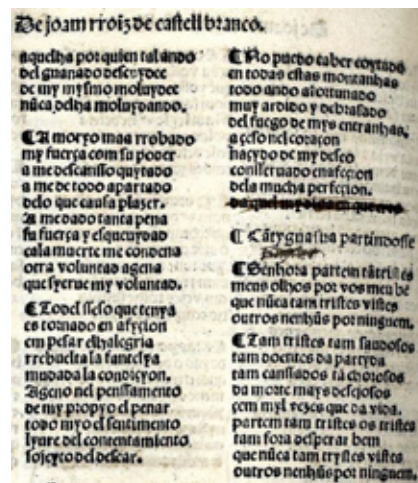 De joam rroiz de castell branco.
aquelha por quien tal ando
del gnanado descuydee
de my mysmo moluydee
nũca delha moluydando.
¶ Amor yo maa rrobado
my fuerça com su poder
a me descansso quytado
a me de todo apartado
delo que causa plazer.
A me dado tanta pena
su fuerça y esqueuydad
cala muerte me condena
otra voluntad agena
que syerue my voluntad.
¶ Todel sseso que tenya
es tornado en afyçion
em pesar elhalegria
rrebuelta la fantesya
mudada la condiçyon.
Ageno nel penssamento
de my propyo el penar
todo myo el sentimento
lyure del contentamiento
sojeyto del desear.
¶ No puedo caber coytado
en todas estas montanhas
todo ando afortunado
muy ardido y debrasado
del fuego de mys entranhas,
açeso nel coraçon
naçydo de my deseo
conssernado
dela mucha perfeçion.
¶ Cãtygua sua partindosse
¶ Senhora partem tã tristes
meus olhos por vos meu bẽ
que nũca tam tristes vistes
outros nenhũs por ninguem.
¶ Tam tristes tam saudosos
tam doentes da partyda
tam canssados tã chorosos
da morte mays desejosos
çem myl vezes que da vida.
partem tam tristes os tristes
tam fora desperar bem
que nũca tam trystes vistes
outros nenhũs por ninguem.